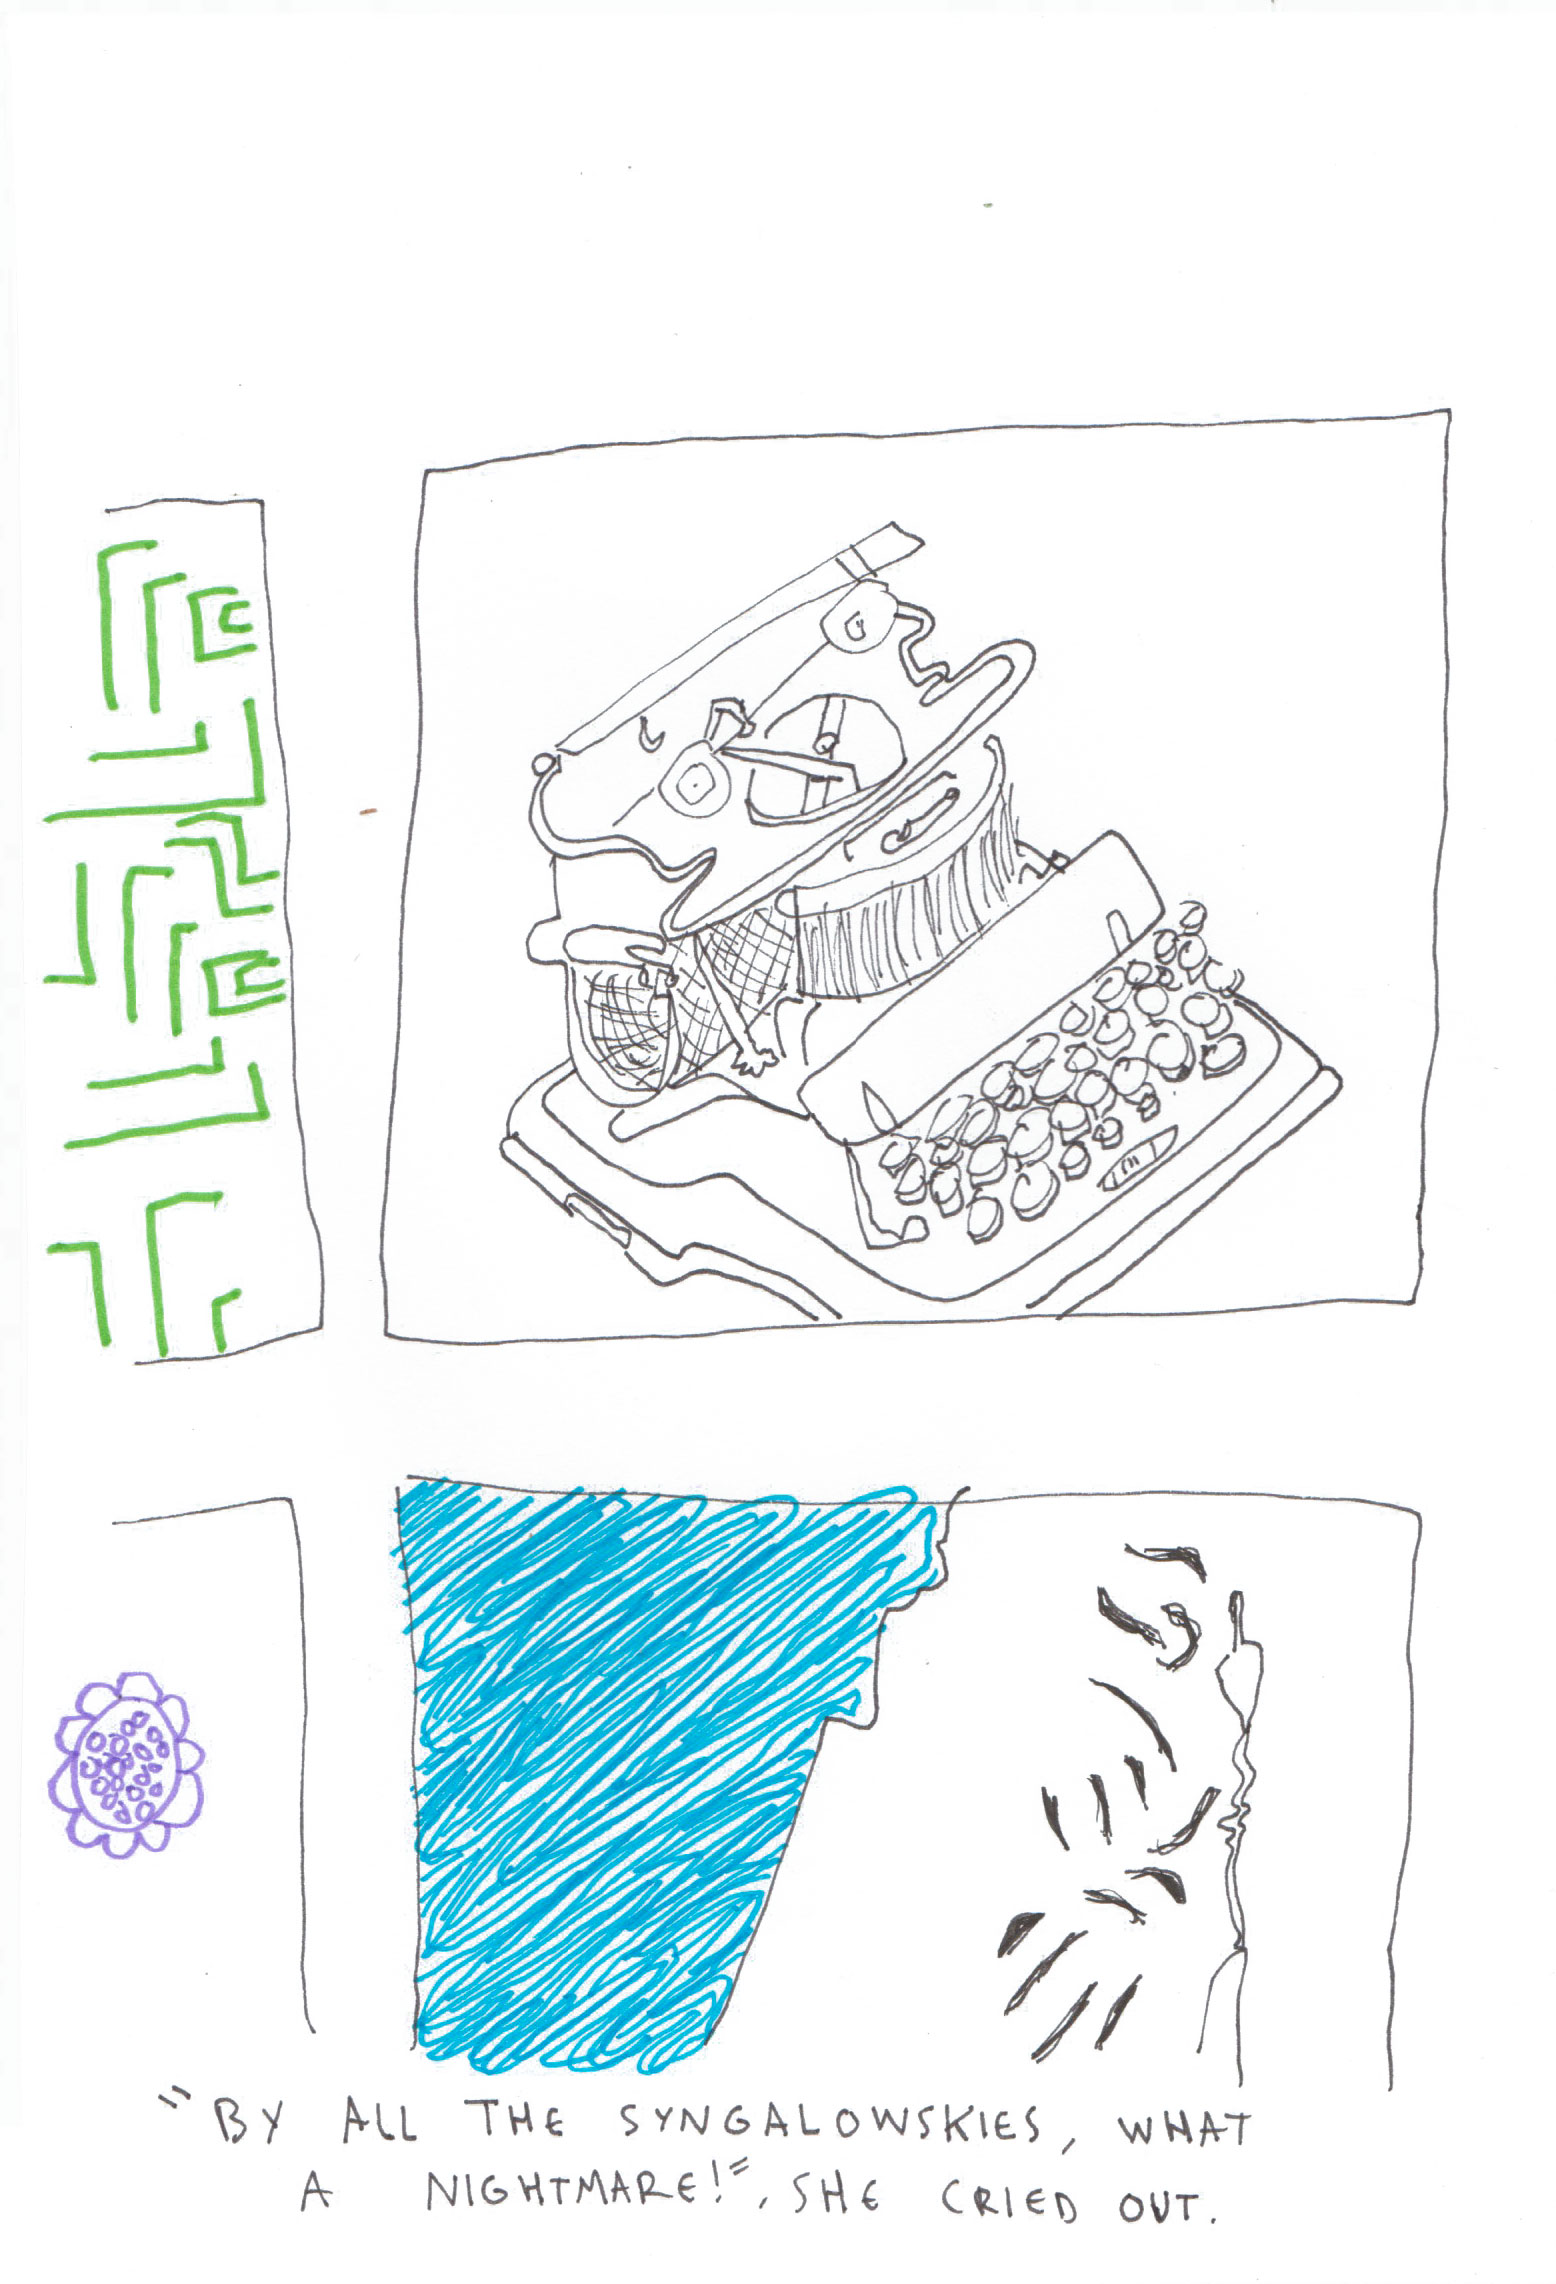 "BY ALL THE SYNGALOWSKIES, WHAT
A NIGHTMARE!", SHE CRIED OUT.